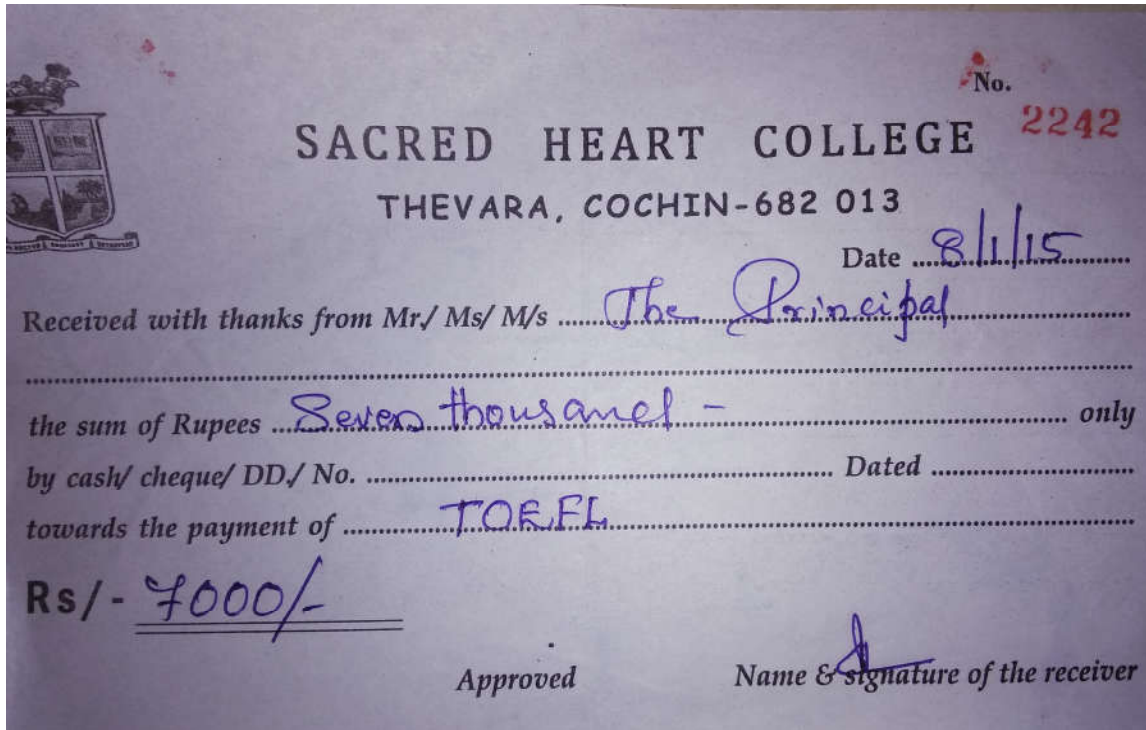 No.
2242
SACRED HEART COLLEGE
THEVARA, COCHIN-682 013
Date 8/1/15
Received with thanks from Mr./ Ms/ M/s The Principal
the sum of Rupees Seven thousand - only
by cash/ cheque/ DD./ No. Dated
towards the payment of TOEFL
Rs/- 7000/-
Approved Name & signature of the receiver